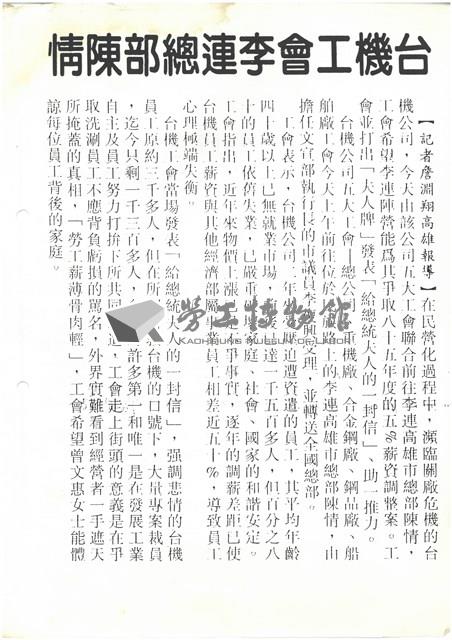 台機工會李連總部陳情
【記者詹淵翔高雄報導】在民營化過程中，瀕臨關廠危機的台
機公司，今天由該公司五大工會聯合前往李連高雄市總部陳情，
工會希望李連陣營能爲其爭取八十五年度的5%薪資調整案。工
會並打出「夫人牌」發表「給總統夫人的一封信」、助一推力。
台機公司五大工會─總公司、重機廠、合金鋼廠、鋼品廠、船
舶廠工會今天上午前往位於 路上的李連高雄市總部陳情，由
擔任文宣部執行長的市議員李 興受理，並轉送全國總部。
工會表示，台機公司二年 歷迫遭資遣的員工，其平均年齡
四十歲以上已無就業市場， 後 達一千五百多人，但百分之八
十的員工依舊失業，已嚴重 家庭、社會、國家的和諧安定。
工會指出，近年來物價上漲 爭事實，逐年的調薪差距已使
台機員工薪資與其他經濟部屬事業員工相差近五十%，導致員工
心理極端失衡。
台機工會當場發表「給總統夫人的一封信」，强調悲情的台機
員工原約三千多人，但在所 台機的口號下，大量專案裁員
，迄今只剩一千三百多人， 許多第一和唯一是在發展工業
自主及員工努力打拚下所共同 造，工會走上街頭的意義是在爭
取洗涮員工不應背負虧損的罵名，外界實難看到經營者一手遮天
所掩蓋的真相，「勞工薪薄骨肉輕」，工會希望曾文惠女士能體
諒每位員工背後的家庭。
勞工博物館
KAOHSIUNG MUSEUM OF LABOR